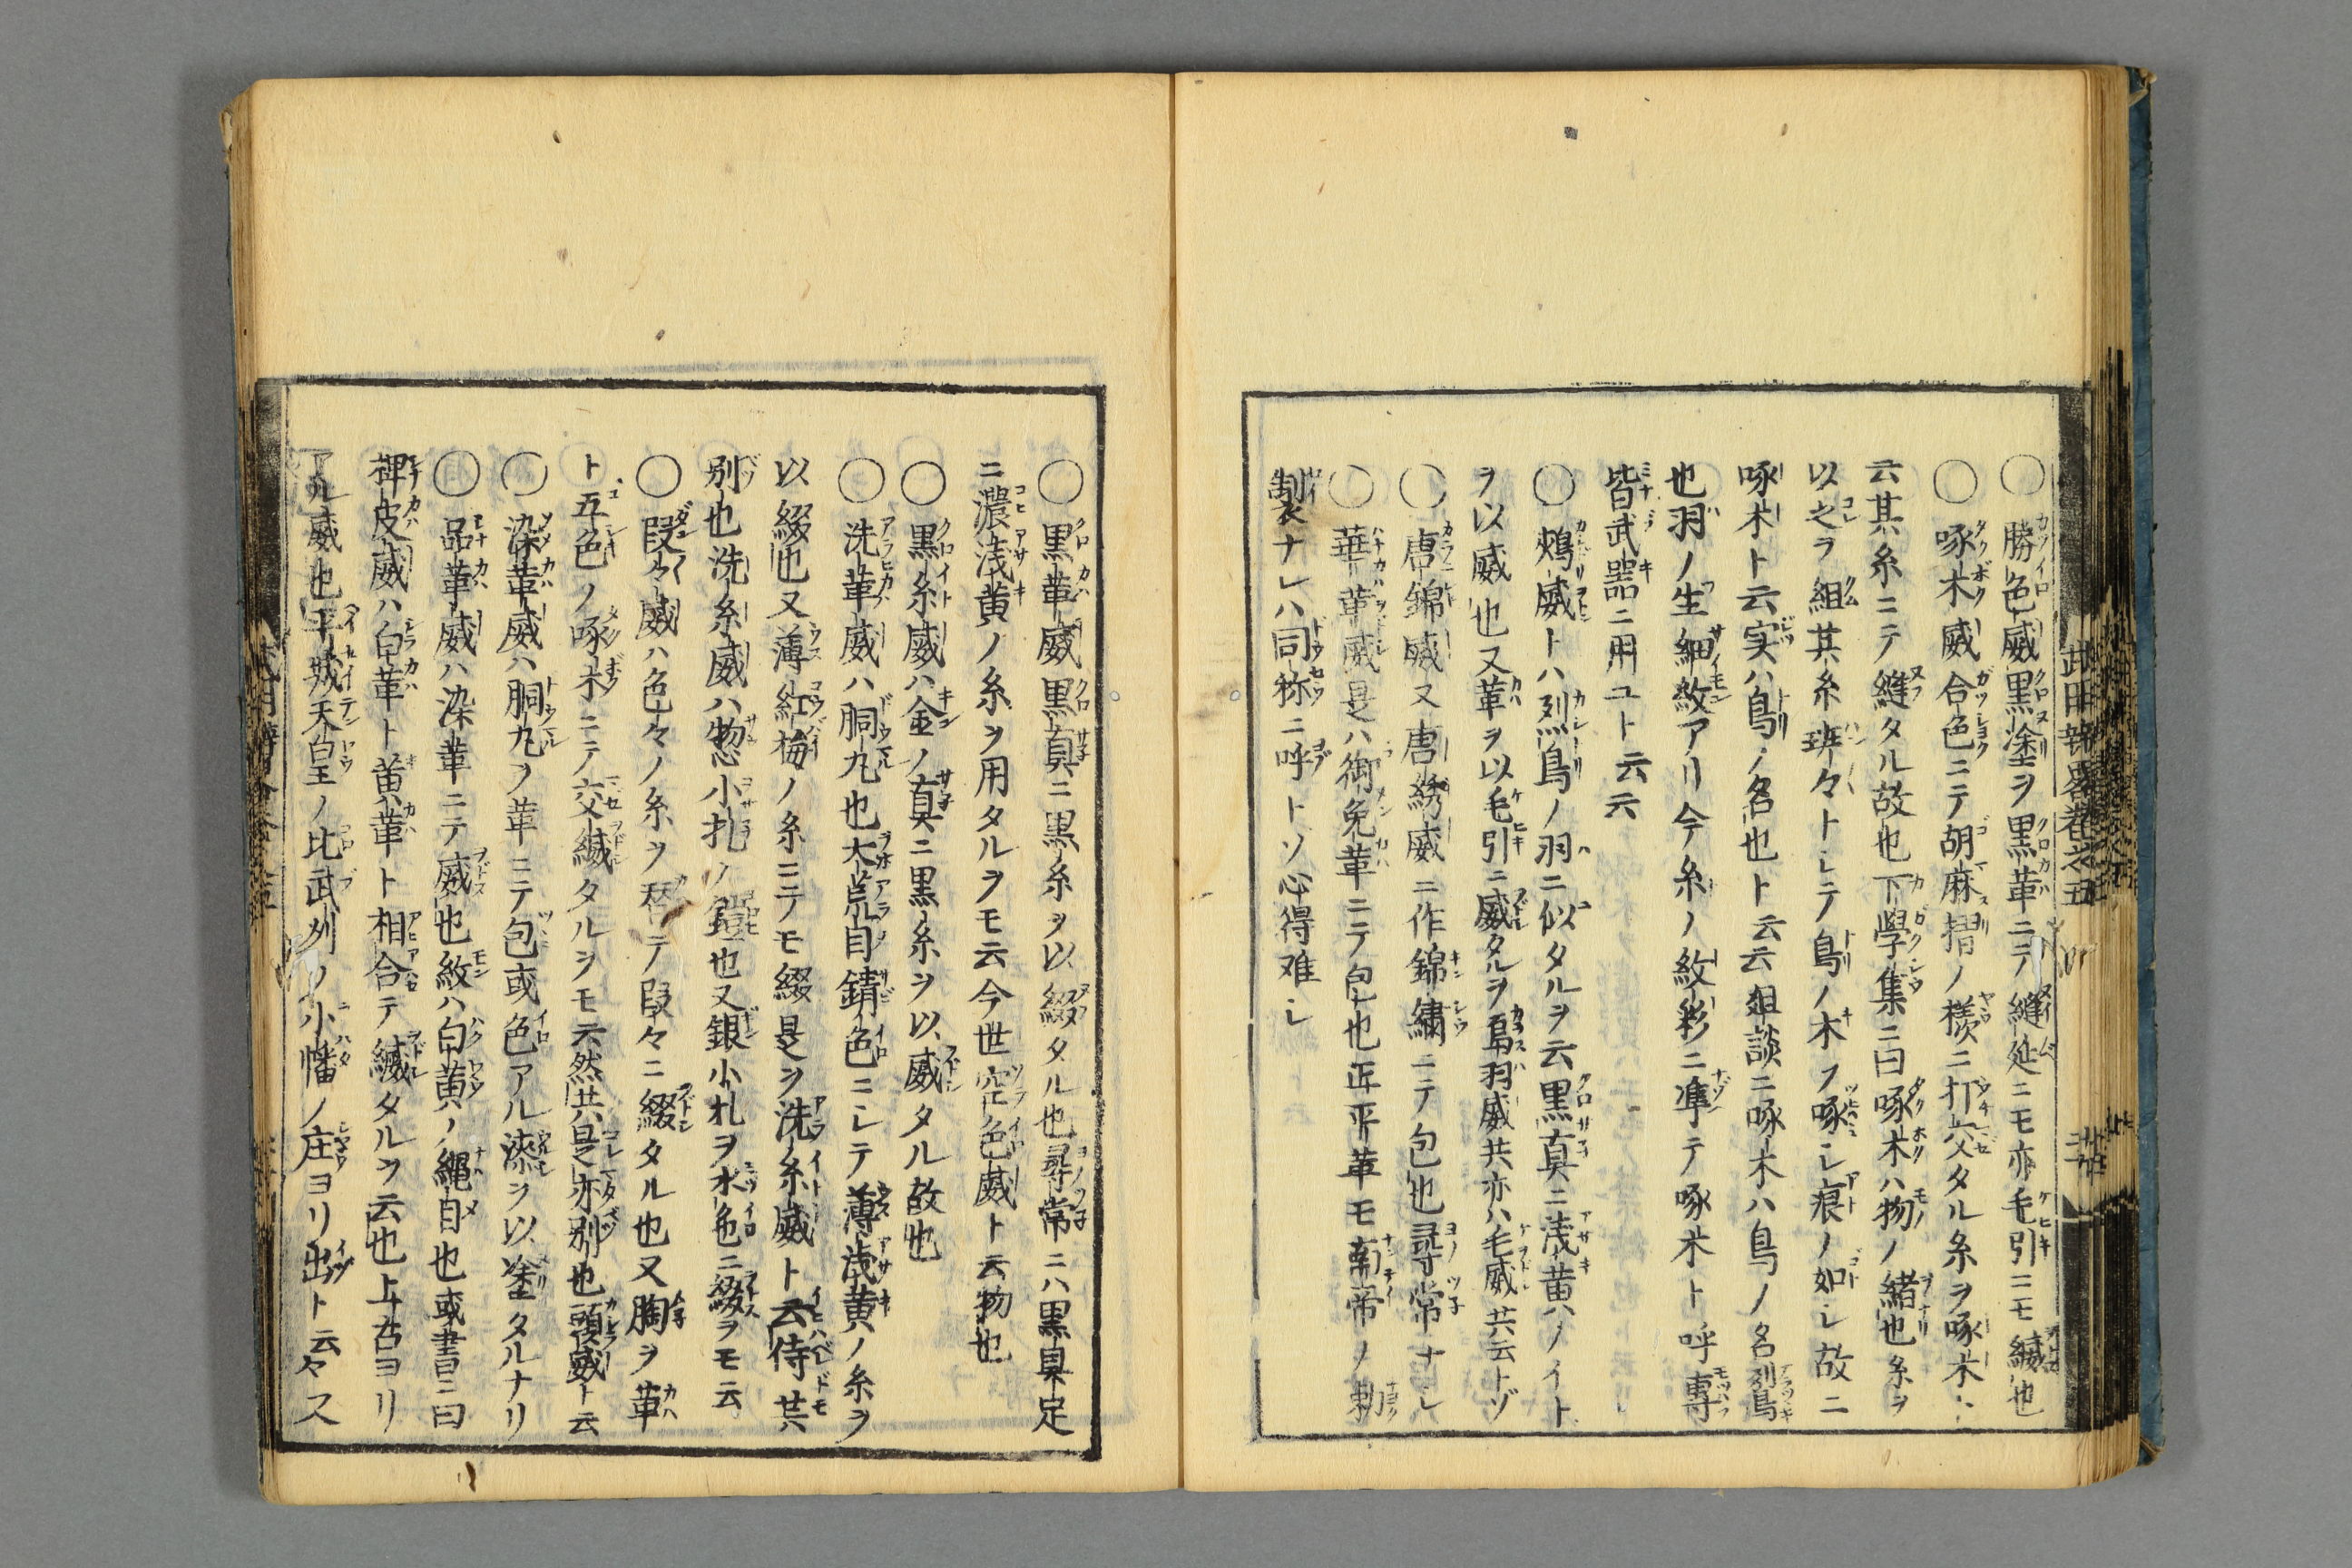 ○勝色威黒塗ヲ黒革ニテ縫延ニモ亦毛引ニモ縅也
○啄木威合色ニテ胡麻揩ノ様ニ打交タル糸ヲ啄木ト
云其糸ニテ縫タル故也下學集ニ曰啄木ハ物ノ緒也糸ヲ
以之ヲ組其糸斑々トシテ鳥ノ木ヲ啄シ痕ノ如シ故ニ
啄木ト云実ハ鳥ノ名也ト云云俎談ニ啄木ハ鳥ノ名
也羽ノ生細紋アリ今糸ノ紋彩ニ準テ啄木ト呼專
皆武器ニ用ユト云云
○鵊威トハ鳥ノ羽ニ似タルヲ云黒真ニ浅黄ハノイト
ヲ以威也又革ヲ以毛引ニ威タルヲ羽威共亦ハ毛威共云トゾ
○唐錦威又唐綉威ニ作錦繍ニテ包也尋常ナシ
○華革威是ハ御免革ニテ包也正平革モ南帝ノ勅
製ナレハ同称ニ呼トソ心得难シ
武用辨畧巻之五
○黒革威黒真ニ黒糸ヲ以綴タル也尋常ニハ黒具足
ニ濃浅黄ノ糸ヲ用タルヲモ云今世空色威ト云物也
○黒糸威ハ金ノ真ニ黒糸ヲ以威タル故也
○洗革威ハ胴丸也大荒目錆色ニシテ薄浅黄ノ糸ヲ
以綴也又薄紅梅ノ糸ニテモ綴是ヲ洗糸威ト云侍共
別也洗糸威ハ惣小札ノ鎧也又銀小札ヲ水色ニ綴ヲモ云
○段々威ハ色々ノ糸ヲ替テ段々ニ綴タル也又胸ヲ革
ト五色ノ啄木ニテ交縅タルヲモ云然共是亦別也頭威ト云
○染革威ハ胴丸ヲ革ニテ包或色アル漆ヲ以塗タルナリ
○品革威ハ染革ニテ威也紋ハ白黄ノ縄目也或書ニ曰
裨皮威ハ白革ト黄革ト相合テ縅タルヲ云也上古ヨリ
アル威也平城天皇ノ比武刕ノ小幡ノ庄ヨリ出ト云々ス